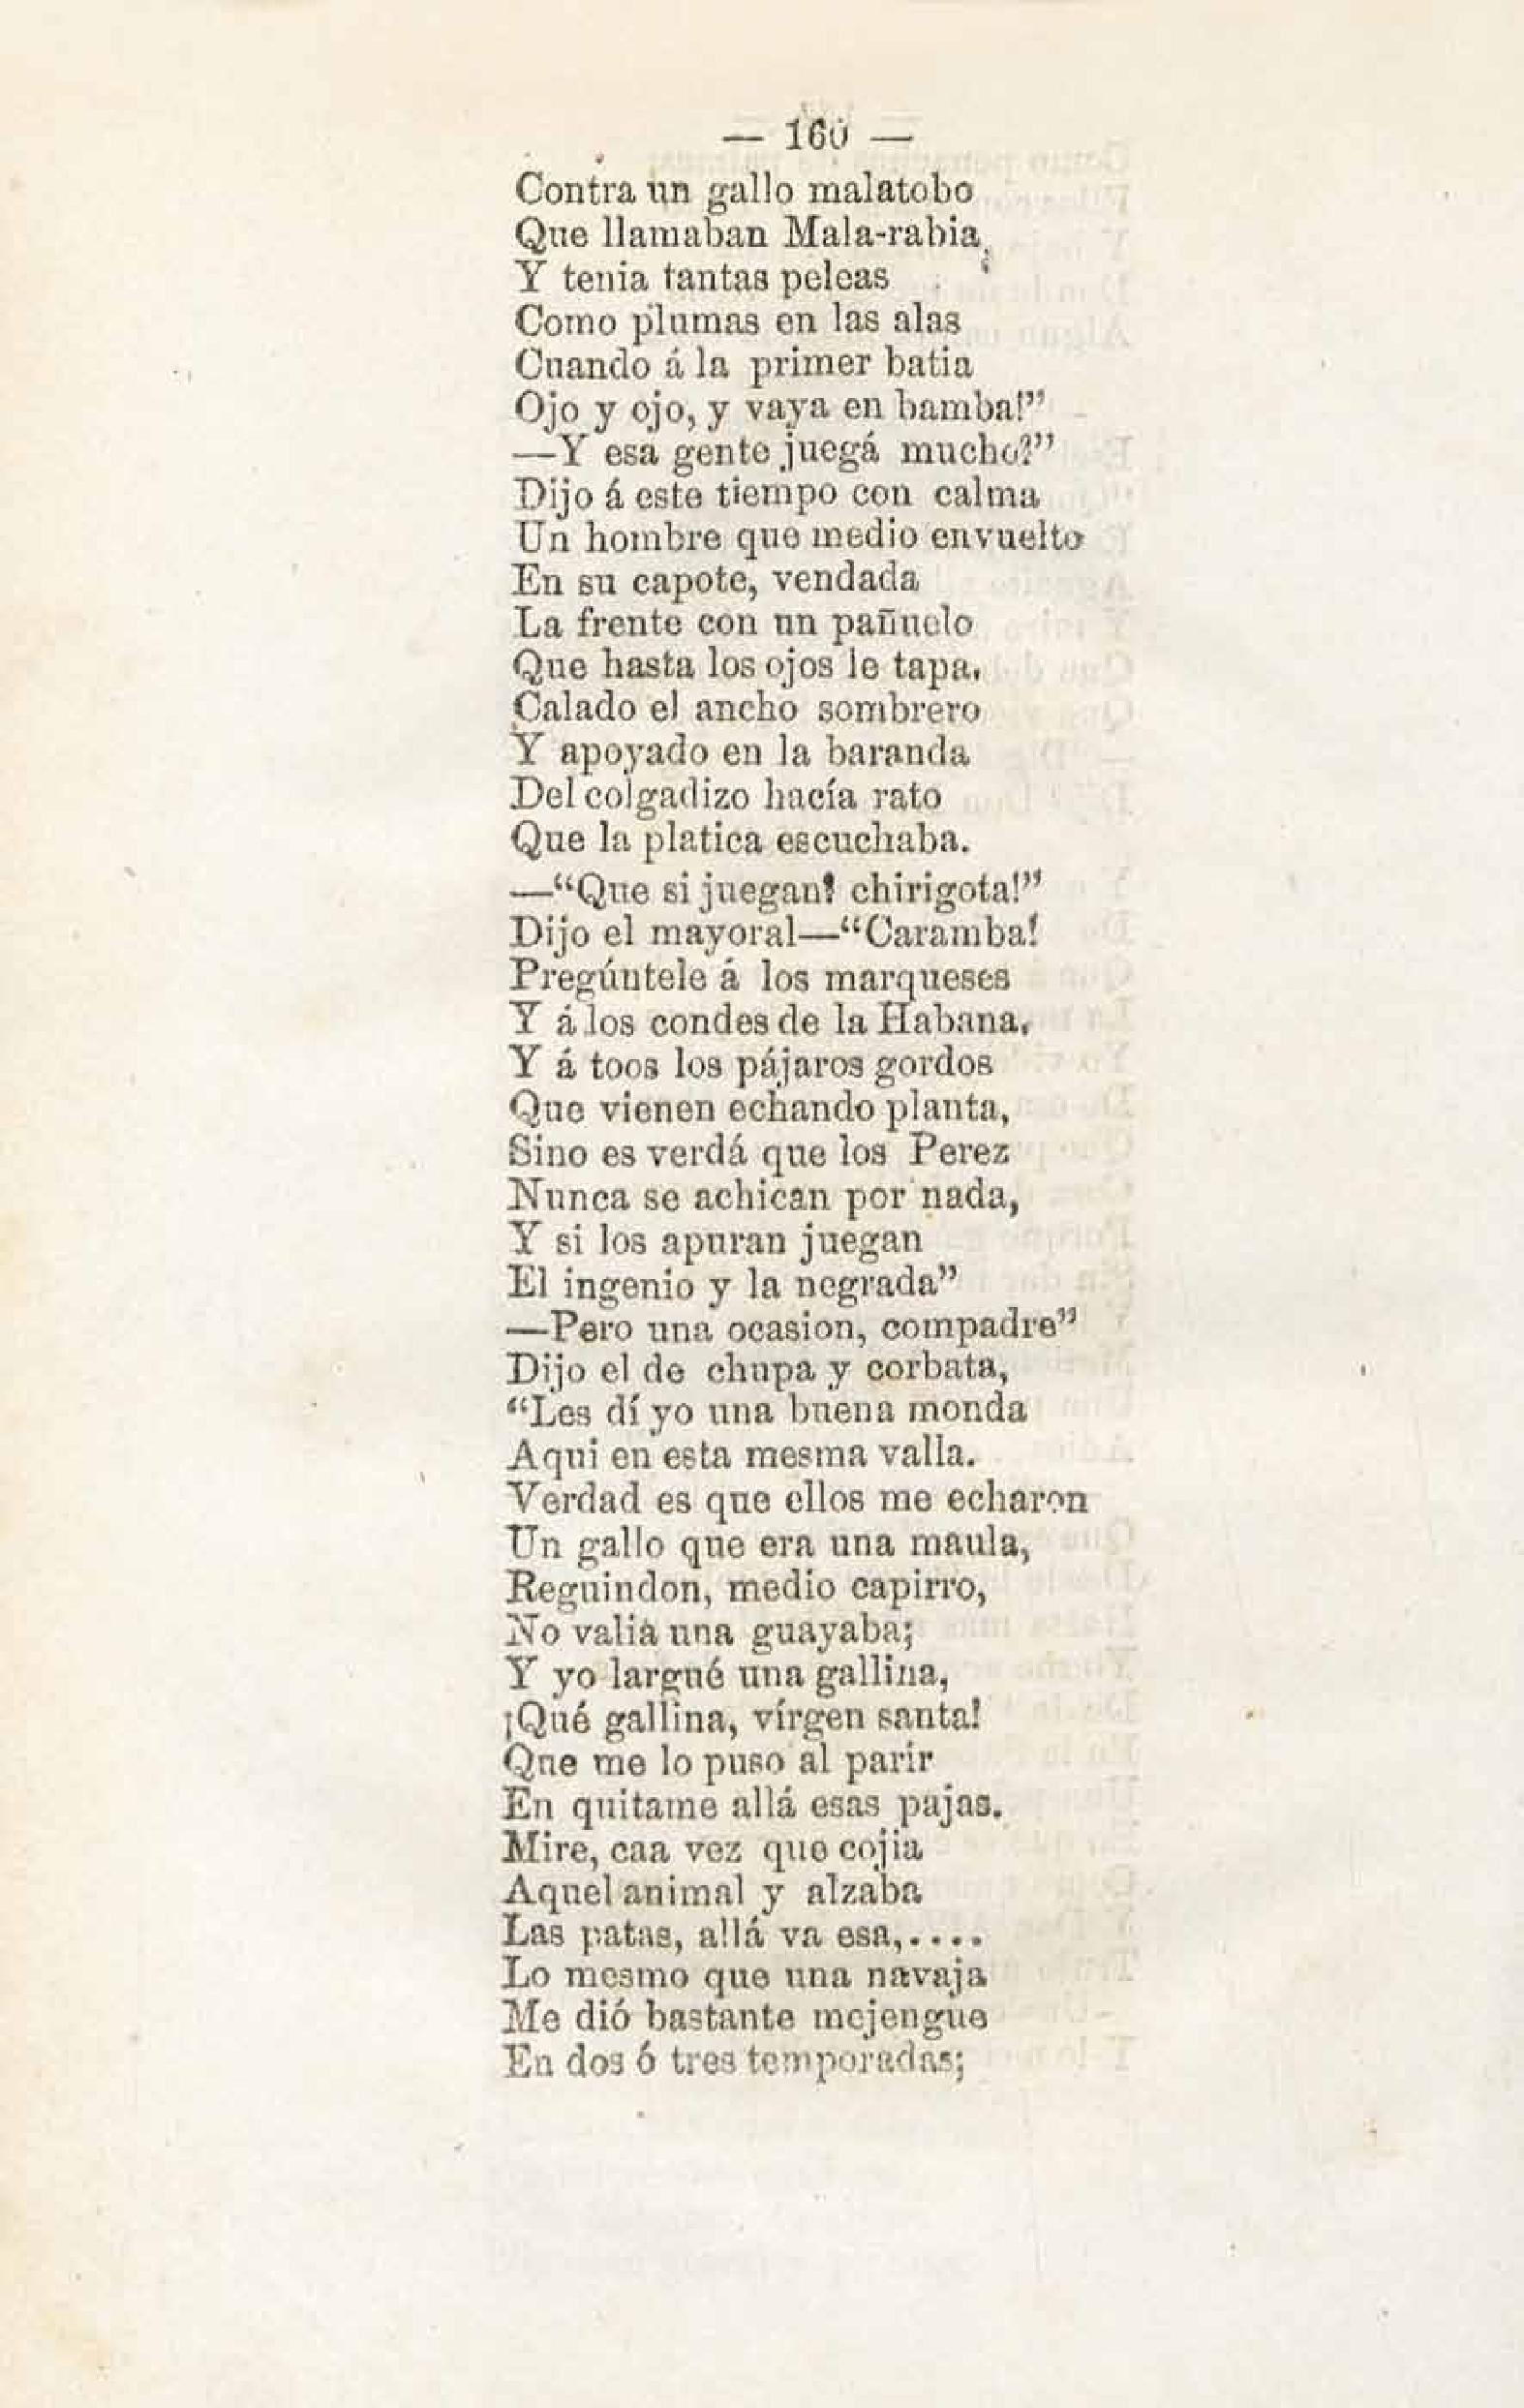 — 160 —
Contra un gallo malatobo
Que llamaban Mala-rabia,
Y tenia tantas peleas
Como plumas en las alas
Cuando á la primer batia
Ojo y ojo, y vaya en bamba!”
—Y esa gente juegá mucho?”
Dijo á este tiempo con calma
Un hombre que medio envuelto
En su capote, vendada
La frente con un pañuelo
Que hasta los ojos le tapa,
Calado el ancho sombrero
Y apoyado en la baranda
Del colgadizo hacía rato
Que la platica escuchaba.
—“Que si juegan! chirigota!”
Dijo el mayoral—“Caramba!
Pregúntele á los marqueses
Y á los condes de la Habana,
Y á toos los pájaros gordos
Que vienen echando planta,
Sino es verdá que los Perez
Nunca se achican por nada,
Y si los apuran juegan
El ingenio y la negrada”
—Pero una ocasion, compadre”
Dijo el de chupa y corbata,
“Les dí yo una buena monda
Aqui en esta mesma valla.
Verdad es que ellos me echaron
Un gallo que era una maula,
Reguindon, medio capirro,
No valia una guayaba;
Y yo largué una gallina,
¡Qué gallina, vírgen santa!
Que me lo puso al parir
En quitame allá esas pajas.
Mire, caa vez que cojia
Aquel animal y alzaba
Las patas, allá va esa,....
Lo mesmo que una navaja
Me dió bastante mejengue
En dos ó tres temporadas;